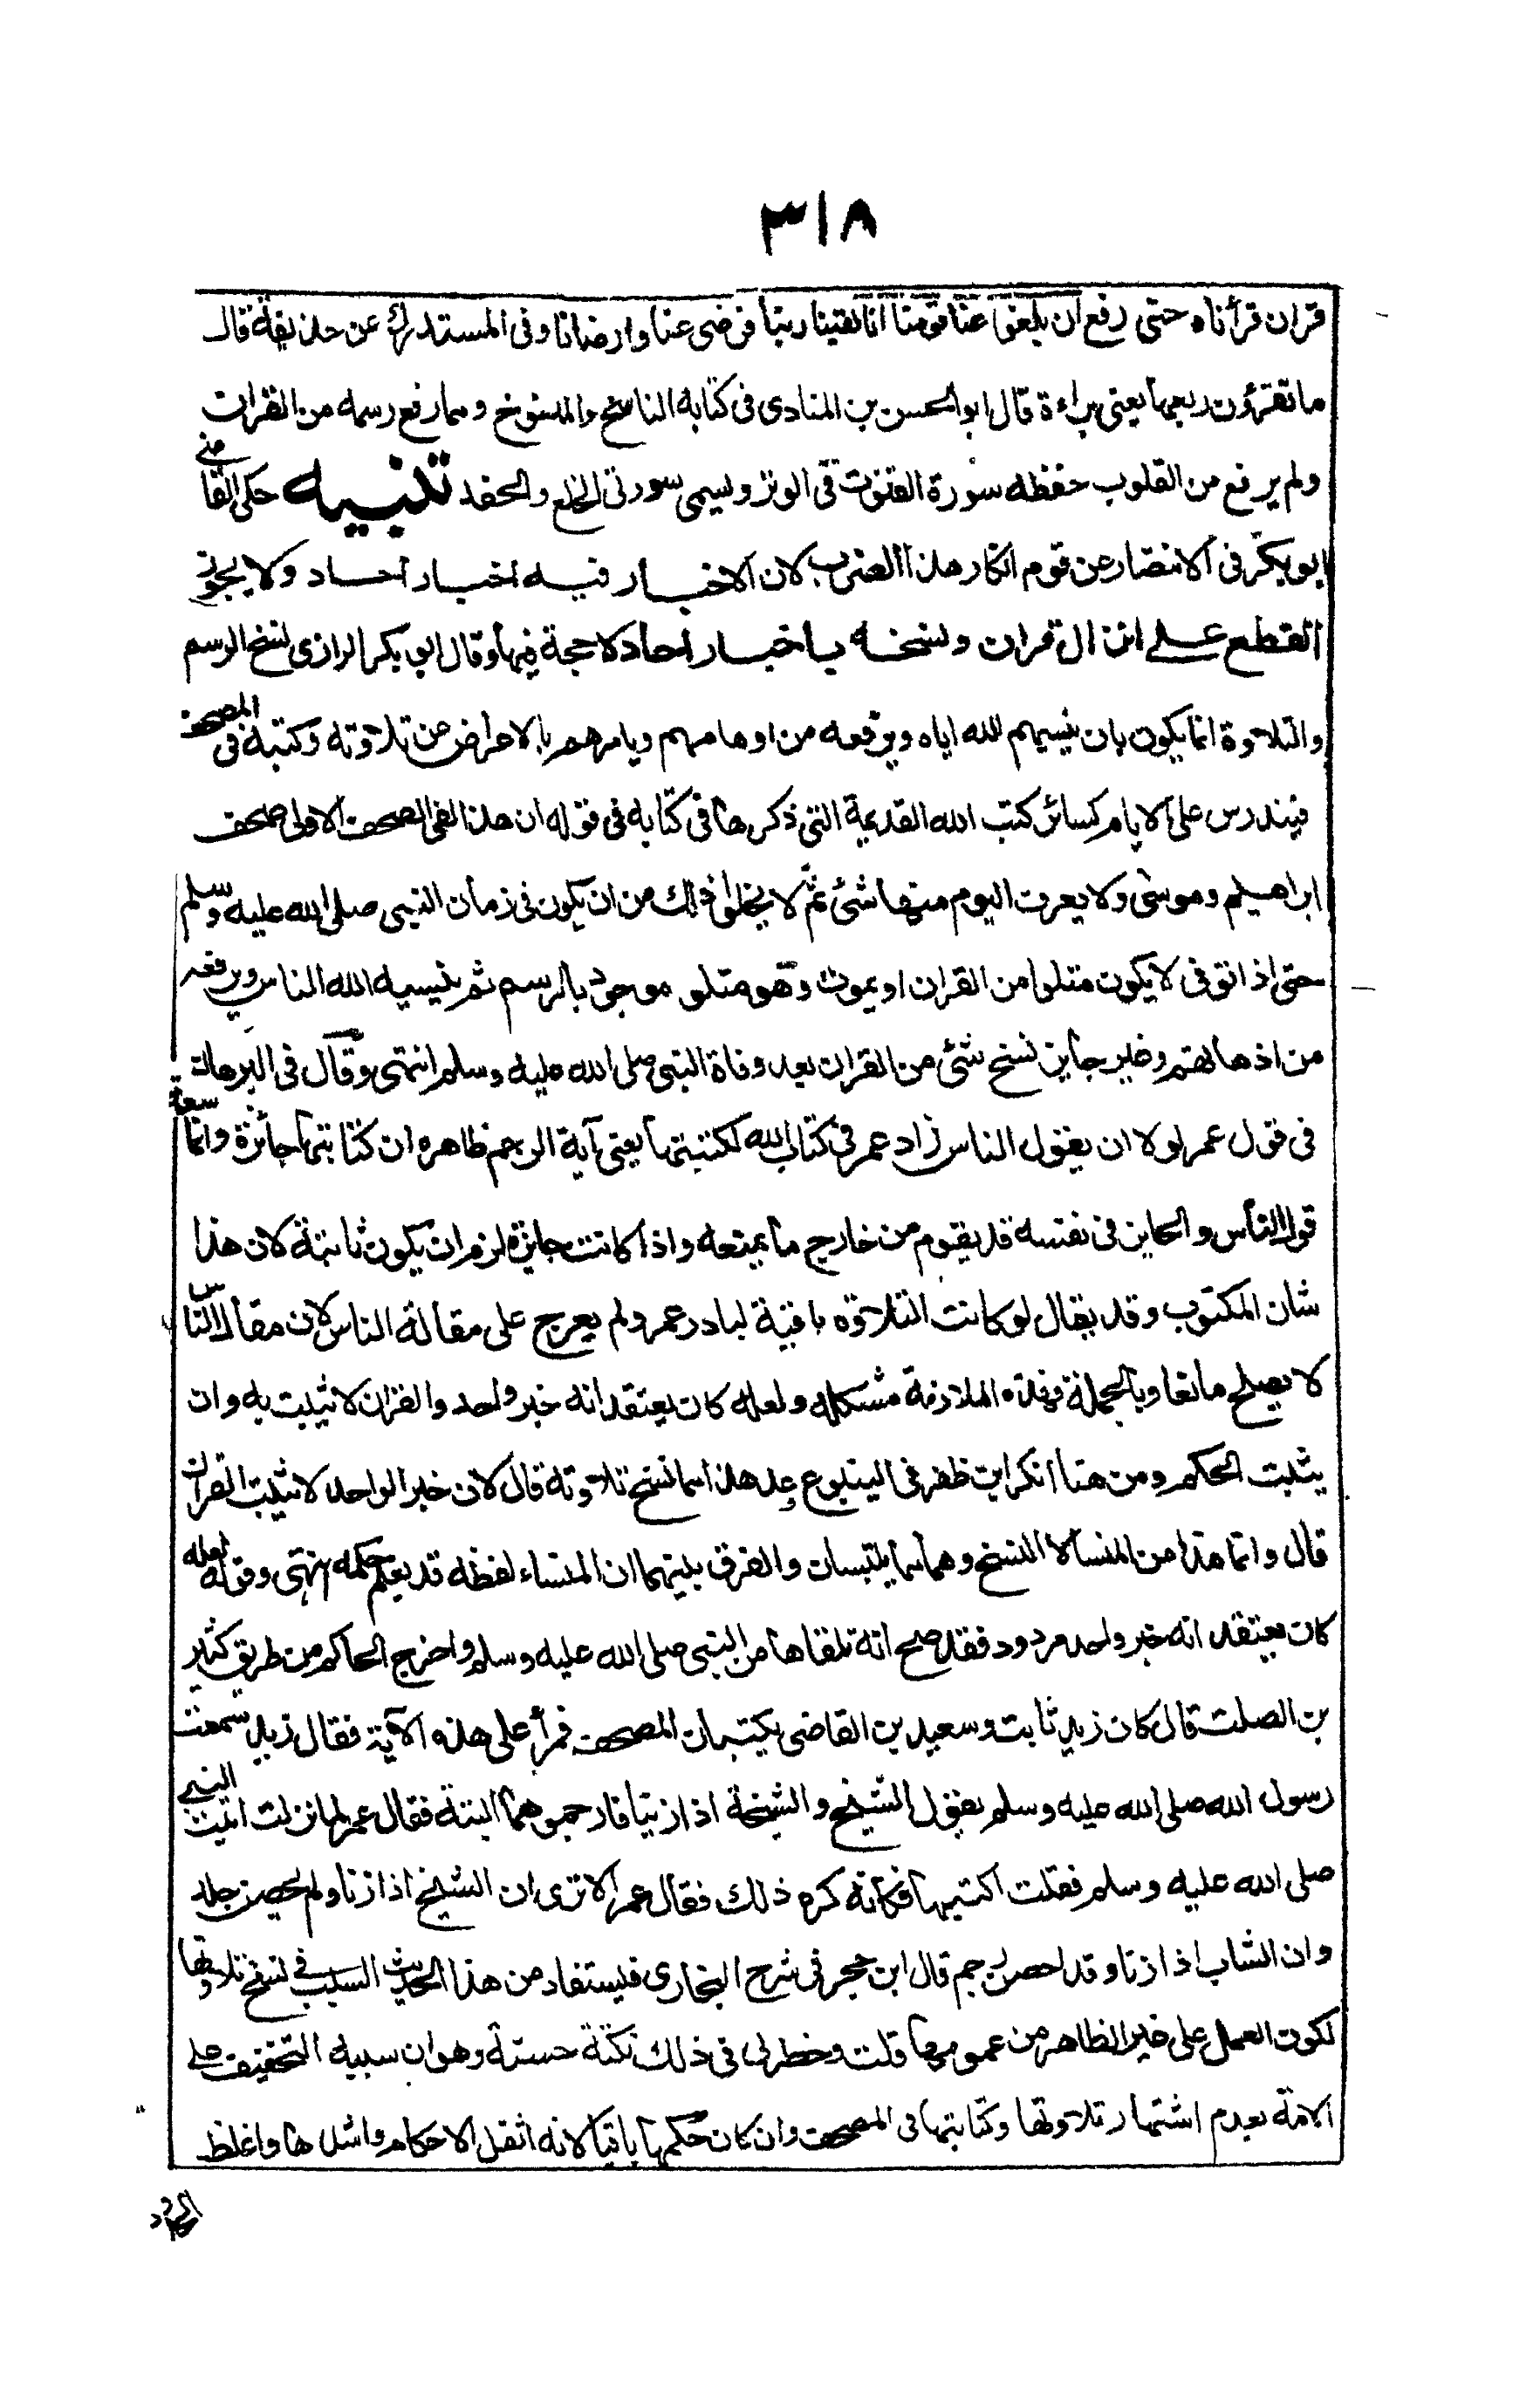 ٣١٨
قران قرأناه حتى رفع ان بلغوا عنا قومنا انا لقينا ربنا فرضى عنا وارضانا وفى المستدرك عن حذيفة قال
ما تقرؤن ربعها يعنى براءة قال ابو الحسن بن المنادى فى كتابه الناسخ والمنسوخ ومما رفع رسمه من القران
ولم يرفع من القلوب حفظه سورة القنوت فى الوتر ويسمى سورتى الخلع والحفد تنبيه حكى القاضى
ابو بكر فى الانتصار عن قوم انكار هذا الضرب لان الاخبار فيه اخبار احاد ولا يجوز
القطع على انزال قران ونسخه باخبار احاد لا حجة فيها وقال ابو بكر الرازى نسخ الرسم
والتلاوة انما يكون بان ينسيهم الله اياه ويرفعه من اوهامهم ويامرهم بالاعراض عن تلاوته وكتبه فى المصحف
فيندرس على الايام كسائر كتب الله القديمة التى ذكرها فى كتابه فى قوله ان هذا لفى الصحف الاولى صحف
ابراهيم وموسى ولا يعرف اليوم منها شئ ثم لا يخلوا ذلك من ان يكون فى زمان النبى صلى الله عليه وسلم
حتى اذا توفى لا يكون متلوا من القران او يموت وهو متلو موجود بالرسم ثم ينسيه الله الناس ويرفعه
من اذهانهم وغير جايز نسخ شئ من القران بعد وفاة النبى صلى الله عليه وسلم انتهى وقال فى البرهان
فى قول عمر لولا ان يقول الناس زاد عمر فى كتاب الله لكتبتها يعنى آية الرجم ظاهره ان كتابتها جائزة وانما منعه
قول الناس والجايز فى نفسه قد يقوم من خارج ما يمنعه واذا كانت جايزة لزم ان يكون ثابتة لان هذا
شان المكتوب وقد يقال لو كانت التلاوه باقية لبادر عمر ولم يعرج على مقالة الناس لان مقال الناس
لا يصلح مانعا وبالجملة فهذه الملازمة مشكله ولعله كان يعتقد انه خبر واحد والقران لا يثبت به وان
يثبت الحكم ومن هنا انكر ابن ظفر فى الينبوع عد هذا مما نسخ تلاوته قال لان خبر الواحد لا يثبت القران
قال وانما هذا من المنسأ لا النسخ وهما مما يلتبسان والفرق بينهما ان المنساء لفظه قد يعلم حكمه انتهى وقوله لعله
كان يعتقد انه خبر واحد مردود فقد صح انه تلقاها من النبى صلى الله عليه وسلم واخرج الحاكم من طريق كثير
بن الصلت قال كان زيد ثابت وسعيد بن القاضى يكتبان المصحف فمرأ على هذه الآية فقال زيد سمعت
رسول الله صلى الله عليه وسلم يقول الشيخ والشيخة اذا زنيا فارجموهما البتة فقال عمر لما نزلت اتيت النبى
صلى الله عليه وسلم فقلت اكتبها فكانه كره ذلك فقال عمر الا ترى ان الشيخ اذا زنا ولم يحصن جلد
وان الشاب اذا زنا وقد احصن رجم قال ابن حجر فى شرح البخارى فيستفاد من هذا الحديث السبب فى نسخ تلاوتها
لكون العمل على غير الظاهر من عمومها قلت وخطر لى فى ذلك نكتة حسنة وهو ان سببه التخفيف على
الامة بعدم اشتهار تلاوتها وكتابتها فى المصحف وان كان حكمها باقيا لانه اثقل الاحكام واشدها واغلظ